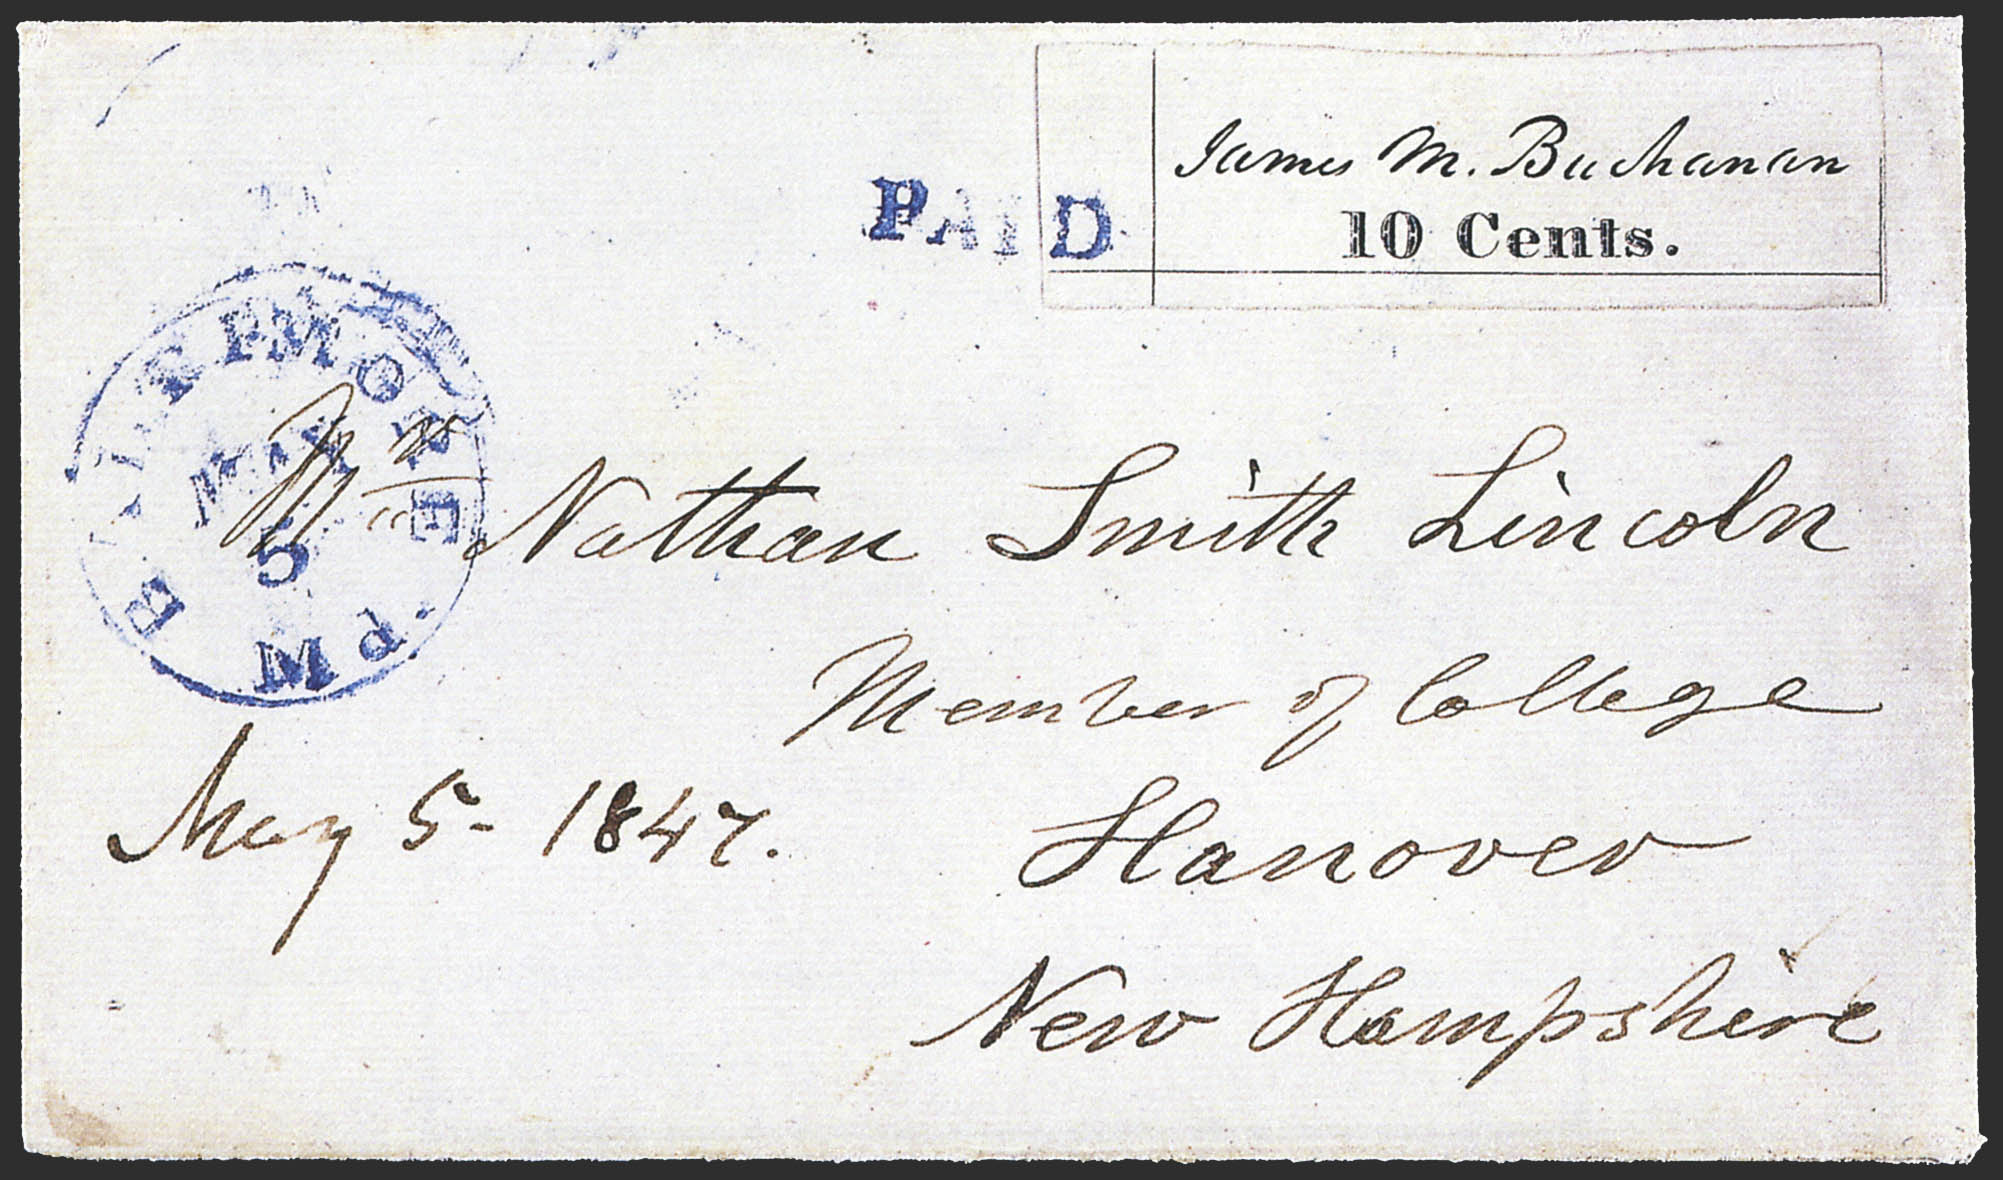 James M. Buchanan
10 Cents.
PAID
BALTIMORE
MAY
5
Mr Nathan Smith Lincoln
Member of College
May 5 - 1847.
Hanover
New Hampshire